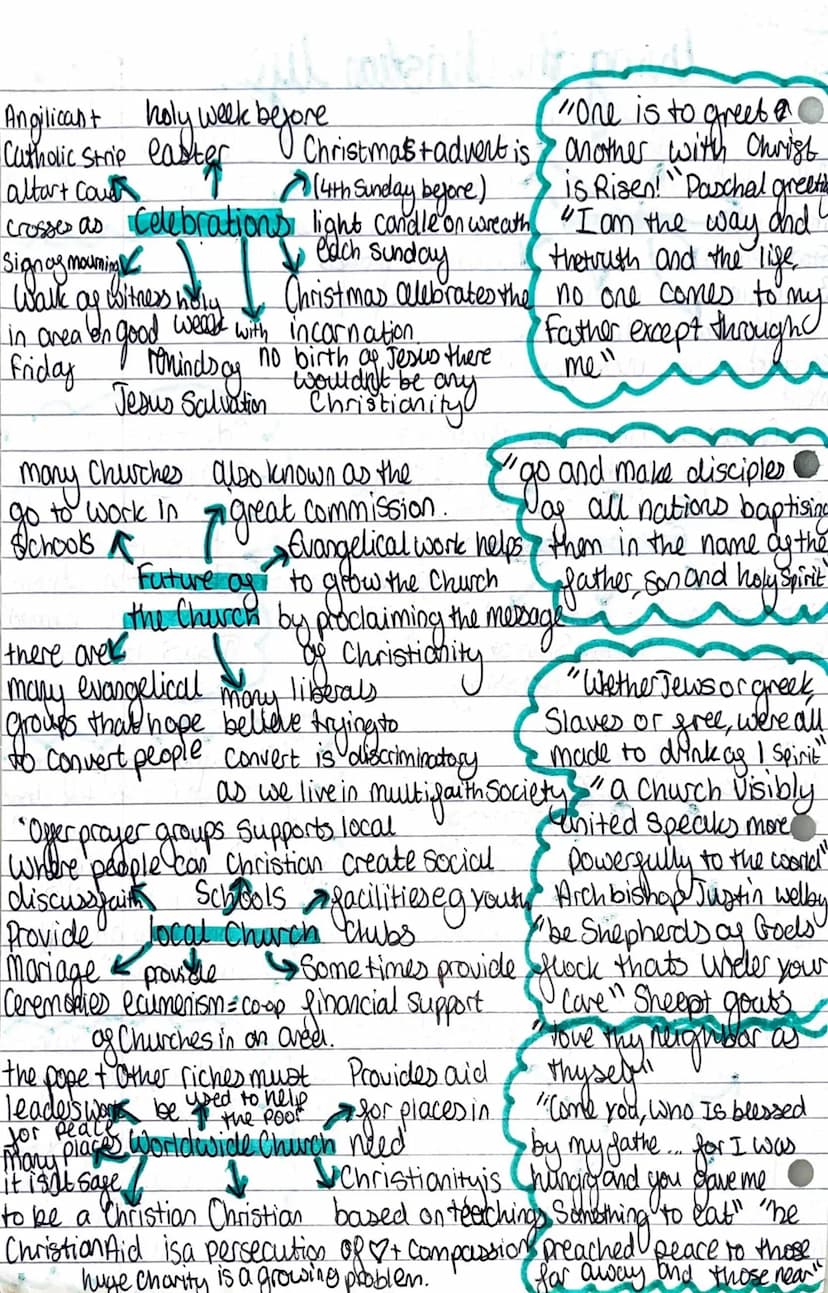 Anglican +
Catholic Strip
altar + cover
crosses as
sign of mourning
holy week before
easter
Christmas + advent is
(4th Sunday before)
light candle on wreath
each Sunday
Celebrations
Walk of witness
in area on good
Friday
holy
week
reminds of
Jesus Salvation
Christmas celebrates the
incarnation
with
no birth of Jesus there
wouldn't be any
Christianity
"One is to greet
another with Christ
is Risen!" Paschal greeting
"I am the way and
the truth and the life,
no one comes to my
Father except through
me"
many Churches
go to work in
Schools
also known as the
great commission.
Evangelical work helps
to grow the Church
by proclaiming the message
of Christianity
Future of
the Church
there are
many evangelical
groups that hope
to convert people
many liberals
believe trying to
convert is discriminatory
as we live in multifaith society
"go and make disciples
of all nations baptising
them in the name of the
father, son and holy Spirit"
"Wether Jews or greek,
Slaves or free, were all
made to drink of 1 spirit"
"a Church visibly
united speaks more
powerfully to the world"
Archbishop Justin welby
"be Shepherds of Gods
flock thats under your
care" Sheep + goats
Offer prayer groups
where people can
discuss faith
supports local
Christian
Schools
create social
facilities eg youth
clubs
local Church
Provide
mariage
Ceremonies
provide
ecumerism = co-op
of Churches in an area.
Some times provide
financial support
"love thy neighbor as
thyself"
"Come you, who is blessed
by my fathe... for I was
hungry and you gave me
something to eat" "he
preached peace to those
far away and those near"
the pope + other
leaders work
for peace
riches must
be used to help
the poor
Provides aid
for places in
need
Worldwide Church
many places
it isn't safe
to be a Christian
Christian Aid is a
huge charity
Christian
persecution
is a growing problem.
Christianity is
based on teachings
of ♡ + compassion